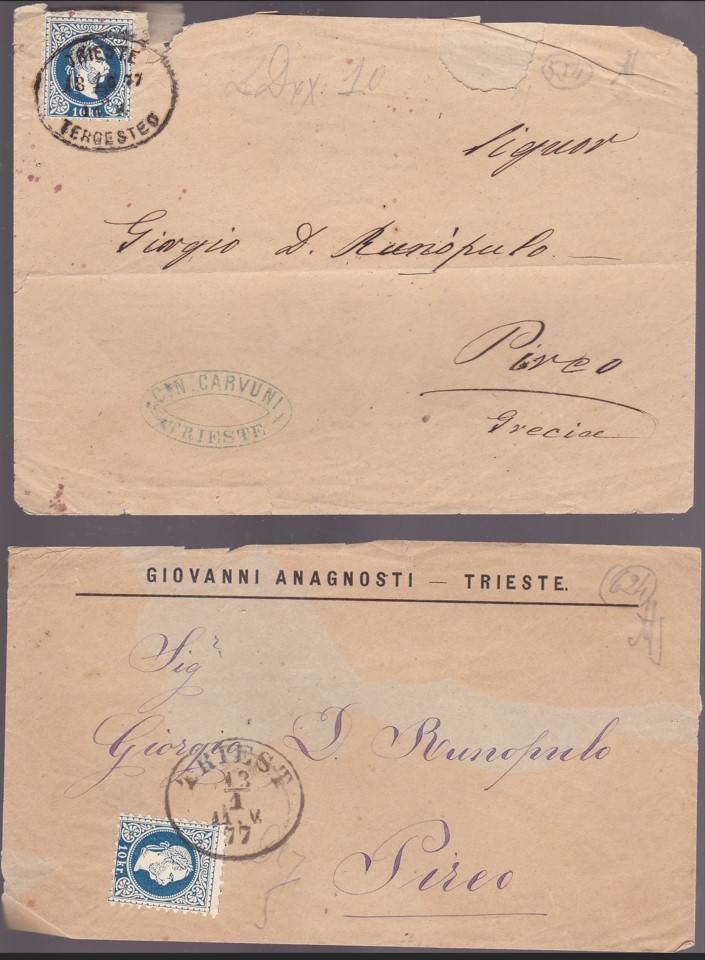 TRIESTE
77
10 kr.
TERGESTEO
10
Signor
Giorgio D. Runòpulo
Pireo
Grecia
C. N. CARVUNI
TRIESTE
GIOVANNI ANAGNOSTI — TRIESTE.
624
Sigr.
Giorgio D. Runopulo
TRIEST
13
1
11 V.
77
10 kr.
Pireo